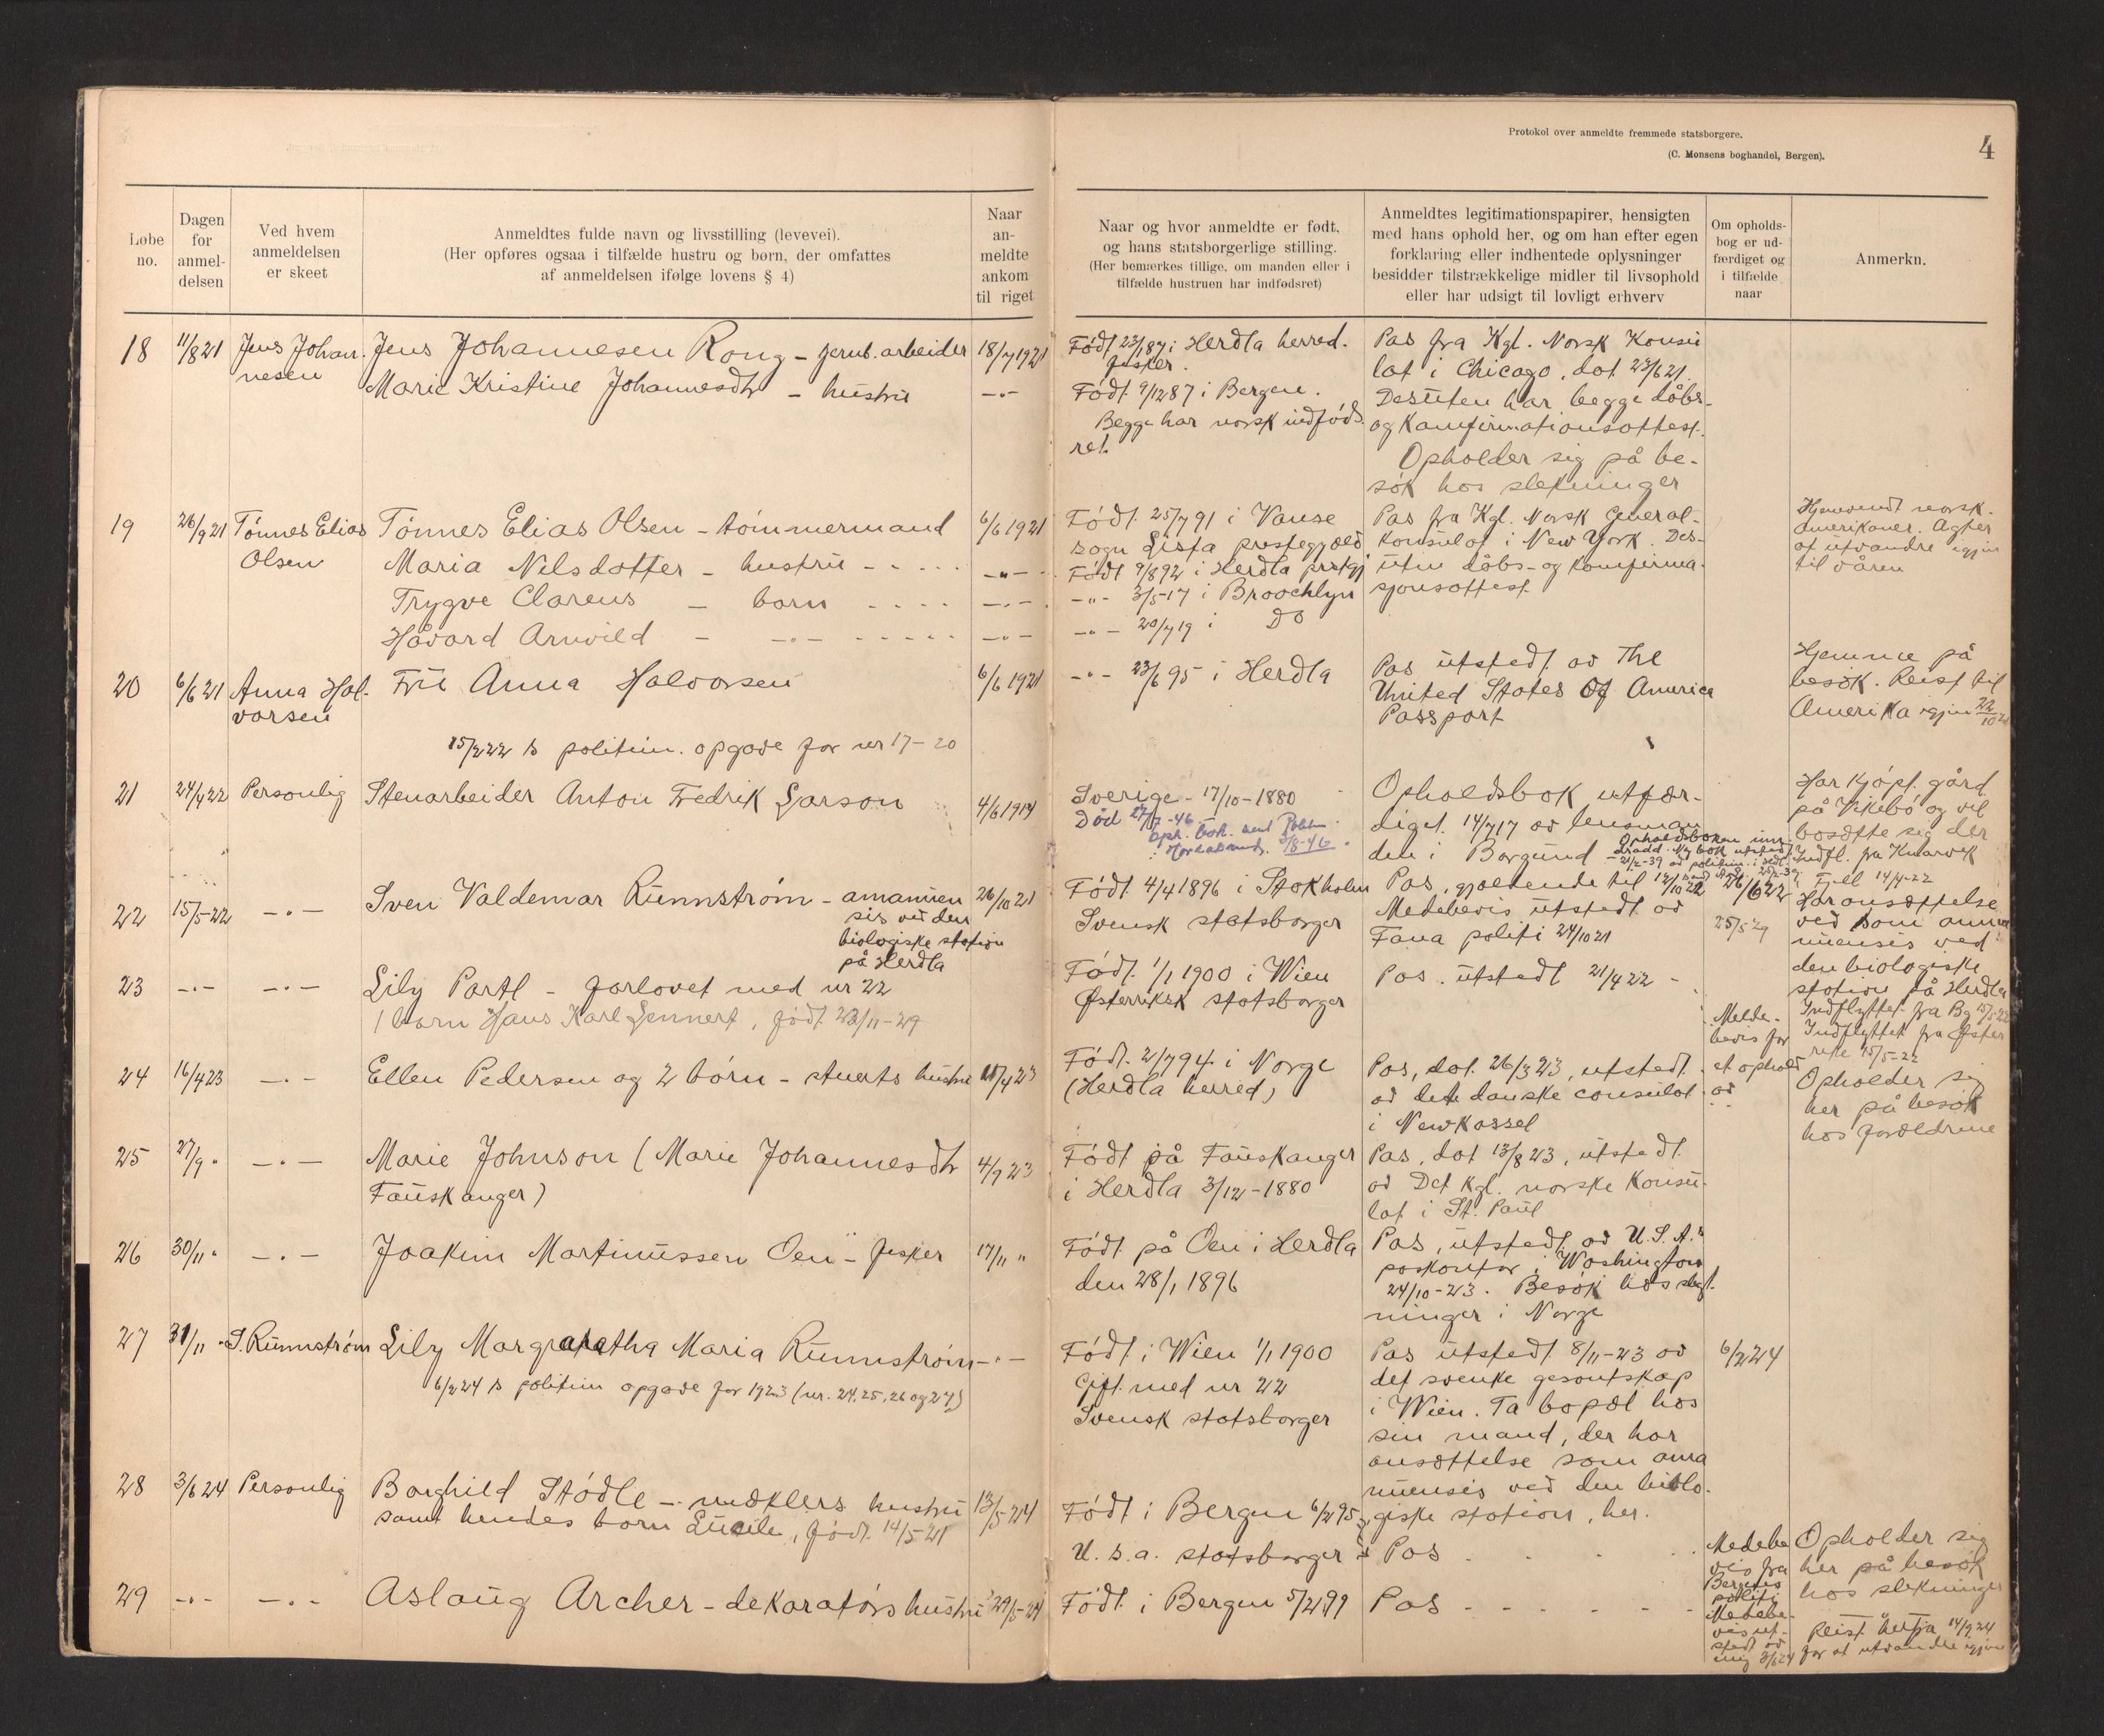 Protokol over anmeldte fremmede statsborgere.
(C. Monsens boghandel, Bergen).
4
Løbe no.
Dagen for anmel- delsen
Ved hvem anmeldelsen er skeet
Anmeldtes fulde navn og livsstilling (levevei).
(Her opføres ogsaa i tilfælde hustru og børn, der omfattes
af anmeldelsen ifølge lovens § 4)
Naar an- meldte ankom til riget
Naar og hvor anmeldte er født,
og hans statsborgerlige stilling.
(Her bemærkes tillige, om manden eller i
tilfælde hustruen har indfødsret)
Anmeldtes legitimationspapirer, hensigten
med hans ophold her, og om han efter egen
forklaring eller indhentede oplysninger
besidder tilstrækkelige midler til livsophold
eller har udsigt til lovligt erhverv
Om opholds- bog er ud- færdiget og i tilfælde naar
Anmerkn.
18 11/8 21 Jens Johan- nesen
Jens Johannesen Rong – jernb. arbeider 18/7 1921
Marie Kristine Johannesdtr – hustru –"–
Født 23/1 87 i Herdla herred.
fisker.
Født 9/12 87 i Bergen.
Begge har norsk indføds-
ret.
Pas fra Kgl. Norsk Konsu
lat i Chicago, dat. 23/6 21.
Desuten har begge dåbs-
og Konfirmationsattest.
Opholder sig på be-
søk hos slektninger
19 26/9 21 Tønnes Elias Olsen
Tønnes Elias Olsen – tømmermand 6/6 1921
Maria Nilsdotter – hustru - - - - - –"–
Trygve Clarens – barn - - - - –"–
Håvard Arnvild – –"– - - - - - –"–
Født 25/7 91 i Vanse
sogn Lista prestegjæld
Født 9/8 92 i Herdla prstgj
–"– 3/5-17 i Broochlyn
–"– 20/7 19 i Do
Pas fra Kgl. Norsk General-
Konsulat i New York. Des-
uten dåbs- og Konfirma-
sjonsattest
Hjemvendt norsk-
amerikaner. Agter
at utvandre igjen
til våren
20 6/6 21 Anna Hal- vorsen
Fru Anna Halvorsen 6/6 1921
–"– 23/6 95 i Herdla
Pas utstedt av The
United States Of America
Passport
Hjemme på
besøk. Reist til
Amerika igjen 22/10 21
15/2 22 s politim. opgave for nr 17–20
21 24/4 22 Personlig
Stenarbeider Anton Fredrik Larson 4/6 1914
Sverige – 17/10–1880
Død 27/7-46
Opholdsbok utfær-
diget 14/7 17 av lensman
den i Borgund
Opholdsboken inn
dradd. Ny bok utstedt
Har kjøpt gård
på Vikebø og vil
bosætte sig der
Indfl. fra Knarvik
i Fjell 14/4-22
22 15/5-22 –"–
Sven Valdemar Runnstrøm – amanuen 26/10 21
sis ved den
biologiske station
på Herdla
Født 4/4 1896 i Stokholm
Svensk statsborger
Pas, gjældende til 12/10 22
Meldebevis utstedt av
Fana politi 24/10 21
26/6 22
25/5-29
Har ansættelse
ved som ama
nuensis ved
den biologiske
station på Herdla
Indflyttet fra Bg 15/5-22
23 –"– –"–
Lily Partl – forlovet med nr 22
1 barn Hans Karl Lennert, født 23/11-29
Født 1/1 1900 i Wien
Østerriksk statsborger
Pas utstedt 21/4 22 –
Indflyttet fra Øster
rike 15/5-22
24 16/4 23 –"–
Ellen Pedersen og 2 børn – stuerts hustru 11/4 23
Født 2/7 94 i Norge
(Herdla herred)
Pas, dat. 26/3 23, utstedt
av dete danske consulat
i Newkassel
Melde-
bevis for
et ophold
Opholder sig
her på besøk
hos foreldrene
25 27/9 " –"–
Marie Johnson (Marie Johannesdtr 4/9 23
Fauskanger)
Født på Fauskanger
i Herdla 3/12–1880
Pas, dat 13/8 23, utstedt
av Det Kgl. norske Konsu-
lat i St. Paul
26 30/11 " –"–
Joakim Martinussen Oen – fisker 17/11 "
Født på Oen i Herdla
den 28/1 1896
Pas, utstedt av U.S.A.s
paskontor i Washington
24/10-23. Besøk hos slekt-
ninger i Norge
27 31/11 " S. Runnstrøm
Lily Margaratha Maria Runnstrøm –"–
6/2 24 s politim opgave for 1923 (nr. 24, 25, 26 og 27)
Født i Wien 1/1 1900
Gift med nr 22
Svensk statsborger
Pas utstedt 8/11-23 av
det svenke gesantskap
i Wien. Ta bopæl hos
sin mand, der har
ansættelse som ama
nuensis ved den biolo-
giske station, her.
6/2 24
28 3/6 24 Personlig
Borghild Stødle – mæklers hustru 13/5-24
samt hendes barn Lucile, født 14/5-21
Født i Bergen 6/2 95
U.S.a. statsborger
Pas
Meldebe
vis fra
Bergens
politi
Opholder sig
her på besøk
hos slektninger
29 –"– –"–
Aslaug Archer – dekoratørs hustru 29/5-24
Født i Bergen 5/2 99
Pas - - - - -
Meldebe-
vis ut-
stedt av
mig 3/6 24
Reist herfra 14/9 24
for at utvandre igjen